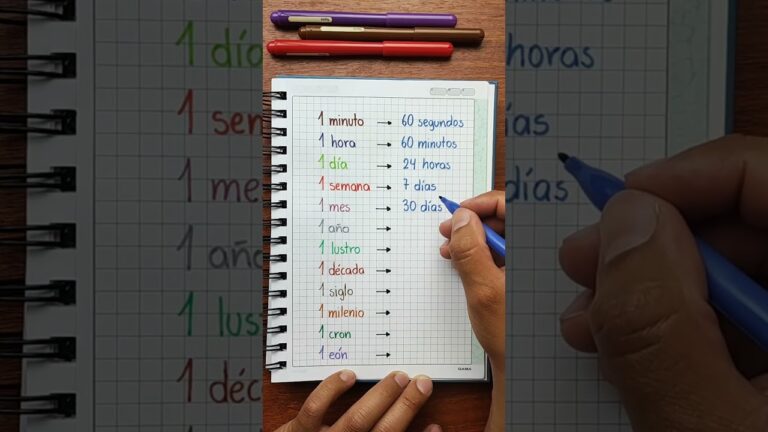 1 minuto → 60 segundos
1 hora → 60 minutos
1 día → 24 horas
1 semana → 7 días
1 mes → 30 días
1 año →
1 lustro →
1 década →
1 siglo →
1 milenio →
1 cron →
1 eón →